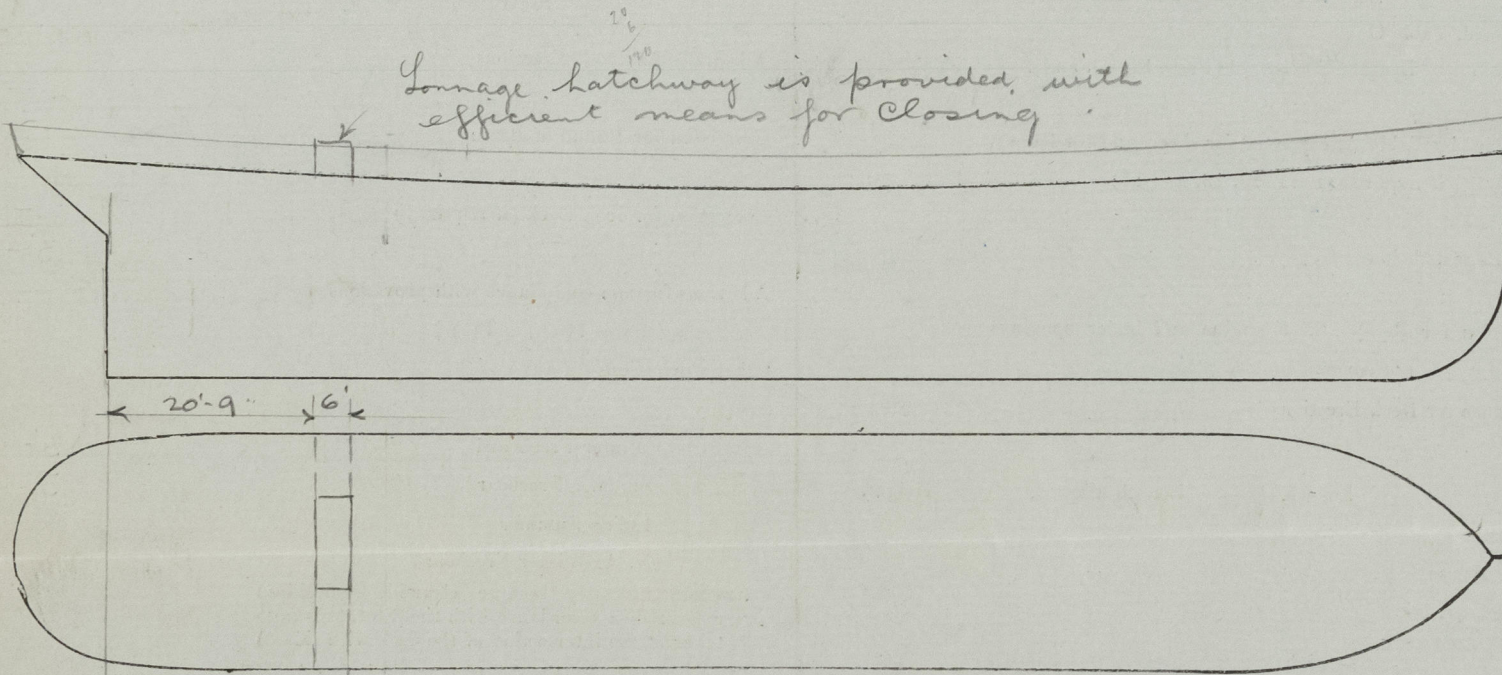 Tonnage hatchway is provided with
efficient means for Closing.
20'-9" 6'